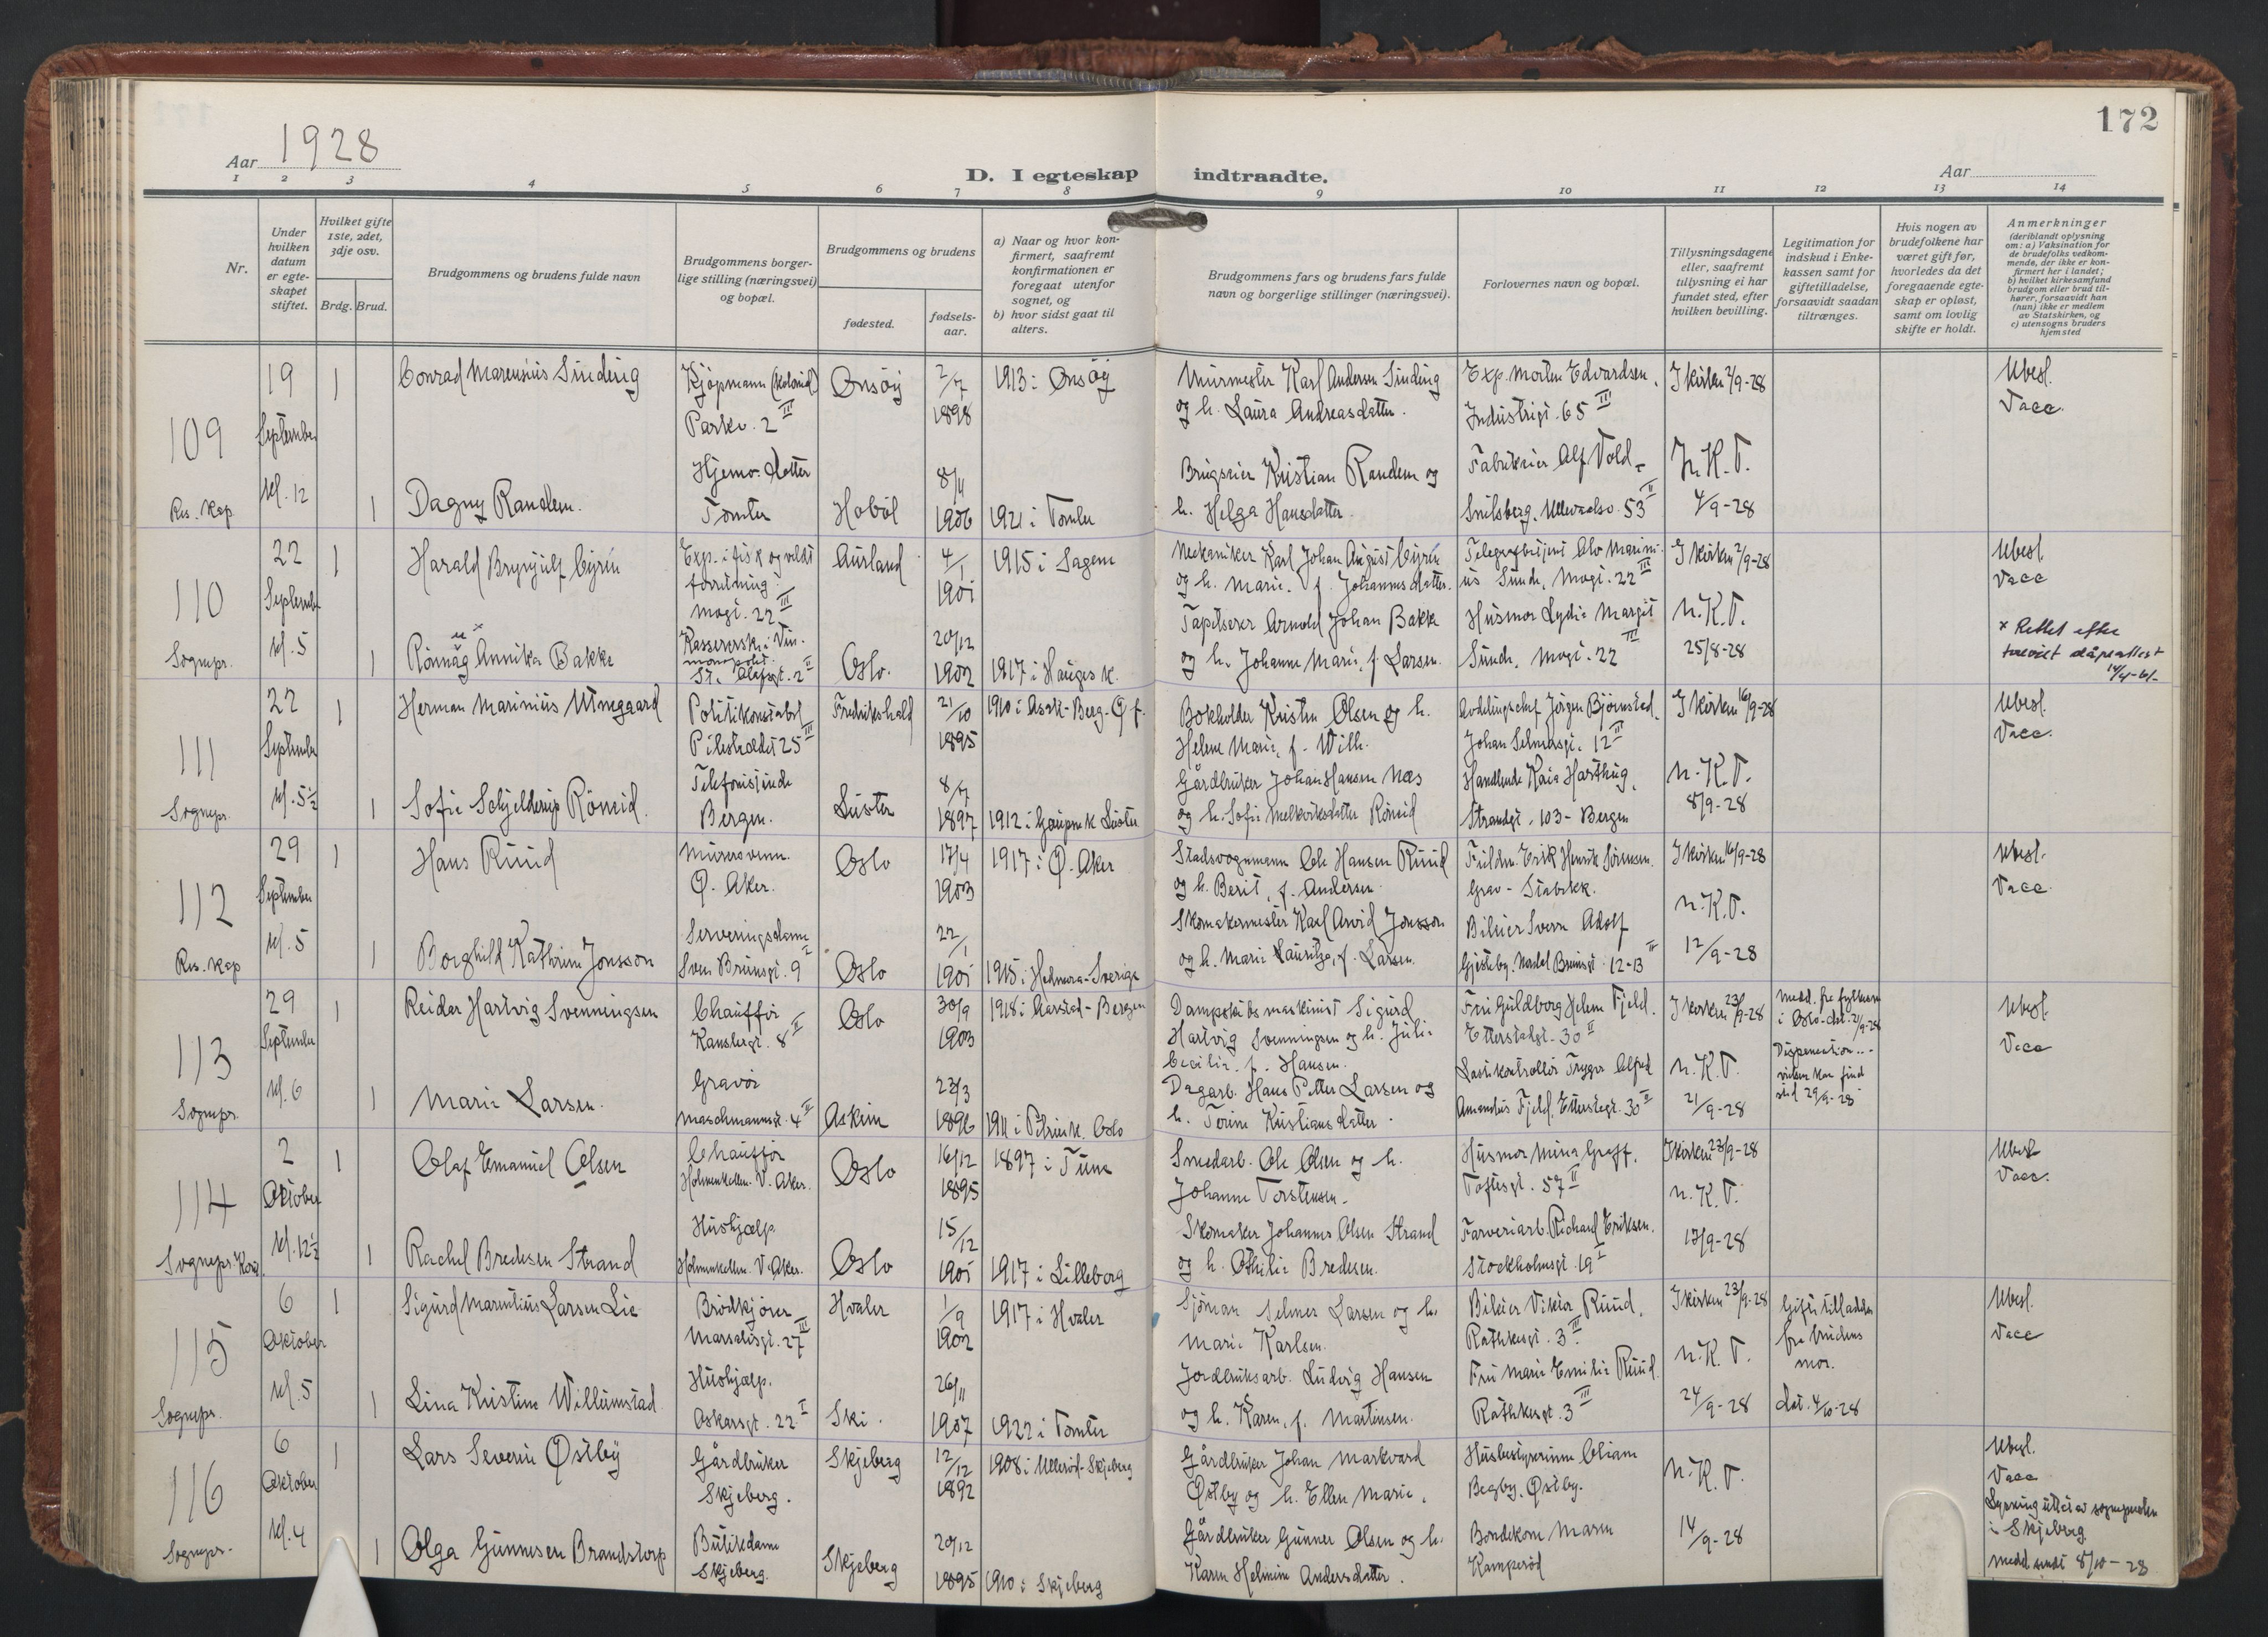 172
Aar 1928
D. I egteskap indtraadte.
Aar
1 2 3 4 5 6 7 8 9 10 11 12 13 14
Nr.
Under hvilken datum er egte- skapet stiftet.
Hvilket gifte 1ste, 2det, 3dje osv.
Brdg. Brud.
Brudgommens og brudens fulde navn
Brudgommens borger- lige stilling (næringsvei) og bopæl.
Brudgommens og brudens
fødested.
fødsels- aar.
a) Naar og hvor kon- firmert, saafremt konfirmationen er foregaat utenfor sognet, og
b) hvor sidst gaat til alters.
Brudgommens fars og brudens fars fulde navn og borgerlige stillinger (næringsvei).
Forlovernes navn og bopæl.
Tillysningsdagene eller, saafremt tillysning ei har fundet sted, efter hvilken bevilling.
Legitimation for indskud i Enke- kassen samt for giftetilladelse, forsaavidt saadan tiltrænges.
Hvis nogen av brudefolkene har været gift før, hvorledes da det foregaaende egte- skap er opløst, samt om lovlig skifte er holdt.
Anmerkninger (deriblandt oplysning om: a) Vaksination for de brudefolks vedkom- mende, der ikke er kon- firmert her i landet; b) hvilket kirkesamfund brudgom eller brud til- hører, forsaavidt han (hun) ikke er medlem av Statskirken, og c) utensogns bruders hjemsted
109 Res. Kap
19 September kl. 12
1 Conrad Marensius Sinding
Kjøpmann (kolonial) Parkv. 2 III
Onsøy 2/7 1898
1913 i Onsøy
Murmester Karl Andersen Sinding
og h. Laura Andreasdatter.
Exp. Morten Edvardsen,
Industrigt. 65 III
I kirken 2/9-28
Ubesl.
Vacc.
1 Dagny Randem.
Hjemv. datter Tomter
Hobøl 8/4 1906
1921 i Tomter
Brugseier Kristian Randem og
h. Helga Hansdatter.
Fabrikeier Alf Vold-
Snilsberg, Ullevaalsv. 53 II
N.K.T. 4/9-28
110 Sognepr.
22 September kl. 5
1 Harald Brynjulf Cyrén
Exp. i fisk og vildt forretning Mogt. 22 III
Aurland 4/1 1901
1915 i Sagene
Mekaniker Karl Johan August Cyrén
og h. Marie, f. Johannesdatter.
Telegrafbetjent Olv Marini-
us Sunde, Mogt. 22 III
I kirken 2/9-28
Ubesl.
Vacc
1 Rönnäg Annika Bakke
Kassererske i Vin- monopolet. St. Olafsgt. 2 II
Oslo. 20/12 1902
1917 i Hauges k.
Tapetserer Arnold Johan Bakke
og h. Johanne Marie, f. Larsen.
Husmor Lydia Margit
Sunde, Mogt. 22 III
N.K.T. 25/8-28
x Rettet efter
forevist dåpsattest
14/4-61-
111 Sognepr.
22 September kl. 5½
1 Herman Marinius Utnegaard
Politikonstabel Pilestrædet 25 III
Fredrikshald 21/10 1895
1910 i Asak-Berg-Ø f.
Bokholder Kristen Olsen og h.
Helene Marie, f. Wilh.
Avdelingschef Jørgen Bjørnstad,
Johan Selmersgt. 12 III
I kirken 16/9-28
Ubesl.
Vacc.
1 Sofie Schjelderup Röneid.
Telefonistinde Bergen.
Luster 8/7 1897
1912 i Gaupne k Luster
Gårdbruker Johan Hansen Næs
og h. Sofie Melkeriksdatter Röneid
Handlende Kaia Harthug,
Strandgt. 103 - Bergen
N.K.T. 8/9-28
112 Res. Kap
29 September kl. 5
1 Hans Ruud
Murersvenn. Ø. Aker.
Oslo 17/4 1903
1917 i Ø. Aker
Stadsvognmann Ole Hansen Ruud
og h. Berit, f. Andersen.
Fuldm. Erik Henrik Sörensen.
Grav - Stabekk.
I kirken 16/9-28
Ubesl.
Vacc.
1 Borghild Kathrine Jonsson
Serveringsdame Sven Brunsgt. 9 I
Oslo 22/1 1901
1915 i Hedmora-Sverige
Skomakermester Karl Arvid Jonsson
og h. Marie Lauritza, f. Larsen.
Bileier Svern Adolf
Gjesteby. Nordal Brunsgt. 12-13 II
N.K.T. 12/9-28
113 Sognepr.
29 September kl. 6
1 Reidar Hartvig Svenningsen
Chauffør 8 II
Oslo 30/9 1903
1918 i Aarstad-Bergen
Dampskibsmaskinist Sigurd
Hartvig Svenningsen og h. Julie
Cecilie, f. Hansen.
Fru Guldborg Helene Fjeld.
Etterstadgt. 30 II
I kirken 23/9-28
Medd. fra fylkesm
i Oslo dat. 21/9-28
Dispensation ...
vielsen kan find
sted 29/9-28
Ubesl.
Vacc
1 Marie Larsen.
Gravør Maschmannsgt. 4 II
Askim 23/3 1896
1911 i Petrus k. Oslo
Dagarb. Hans Petter Larsen og
h. Torine Kristiansdatter.
Lastekontrollør Trygve Alfred
Amandus Fjeld, Etterstgt. 30 II
N.K.T. 21/9-28
114 Sognepr. Kons.
2 Oktober kl. 12½
1 Olaf Emanuel Olsen
Chauffør Holmenkollen. V. Aker.
Oslo 16/12 1895
1897 i Tune
Smedarb. Ole Olsen og h.
Johanne Torstensen.
Husmor Mina Graff,
Toftesgt. 57 II
I kirken 23/9-28
Ubesl
Vacc.
1 Rachel Bredesen Strand
Hushjælp Holmenkollen. V. Aker.
Oslo 15/12 1901
1917 i Lilleborg
Skomaker Johannes Olsen Strand
og h. Othilie Bredesen.
Farveriarb. Richard Eriksen.
Stockholmsgt. 19 I
N.K.T. 13/9-28
115 Sognepr.
6 Oktober kl. 5
1 Sigurd Marentius Larsen Lie
Brødkjører Marselisgt. 27 III
Hvaler 1/9 1902
1917 i Hvaler
Sjömann Selmer Larsen og h.
Marie Karlsen.
Bileier Viktor Ruud,
Rathkesgt. 3 III
I kirken 23/9-28
Giftetilladelse
fra brudens
mor.
dat. 4/10-28
Ubesl.
Vacc
1 Lina Kristine Willumstad
Hushjælp. Oskarsgt. 22 I
Ski. 26/11 1907
1922 i Tomter
Jordbruksarb. Ludvig Hansen
og h. Karen, f. Martinsen.
Fru Marie Emilie Ruud.
Rathkesgt. 3 III
N.K.T. 24/9-28
116 Sognepr.
6 Oktober kl. 4
1 Lars Severin Østby
Gårdbruker Skjeberg.
Skjeberg 12/12 1892
1908 i Ullerøi-Skjeberg
Gårdbruker Johan Markvard
Østby og h. Ellen Marie.
Husbestyrerinne Oliane
Begby, Østby.
N.K.T. 14/9-28
Ubesl.
Vacc
Lysning utført av sognepresten
i Skjeberg
medd. sendt 8/10-28
1 Olga Gunnesen Brandstorp
Butikkdame Skjeberg.
Skjeberg 20/12 1895
1910 i Skjeberg
Gårdbruker Gunner Olsen og h.
Karen Helmine Andersdatter.
Bondekone Maren
Kamperød